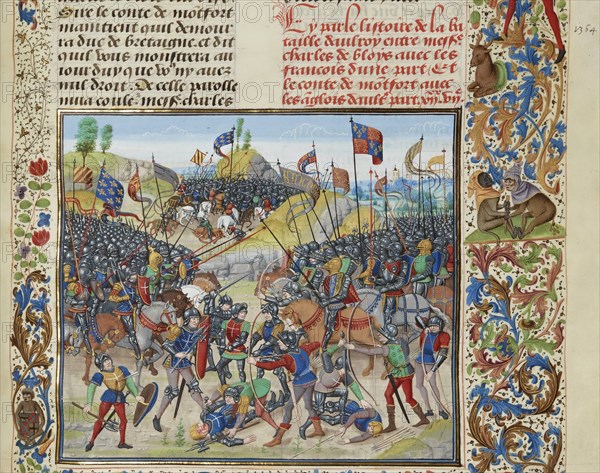 Sire le conte de motfort
maintient quil demou
ra duc de bretaigne et dit
quil vous monstrera au
iourduy que vous ny auez
nul droit. De celle parolle
mua couleur messire charles
Cy parle listoire de la ba
taille daulroy entre messire
charles de bloys auec les
francois dune part Et
le conte de motfort auec
les aglois daultre part.
1364